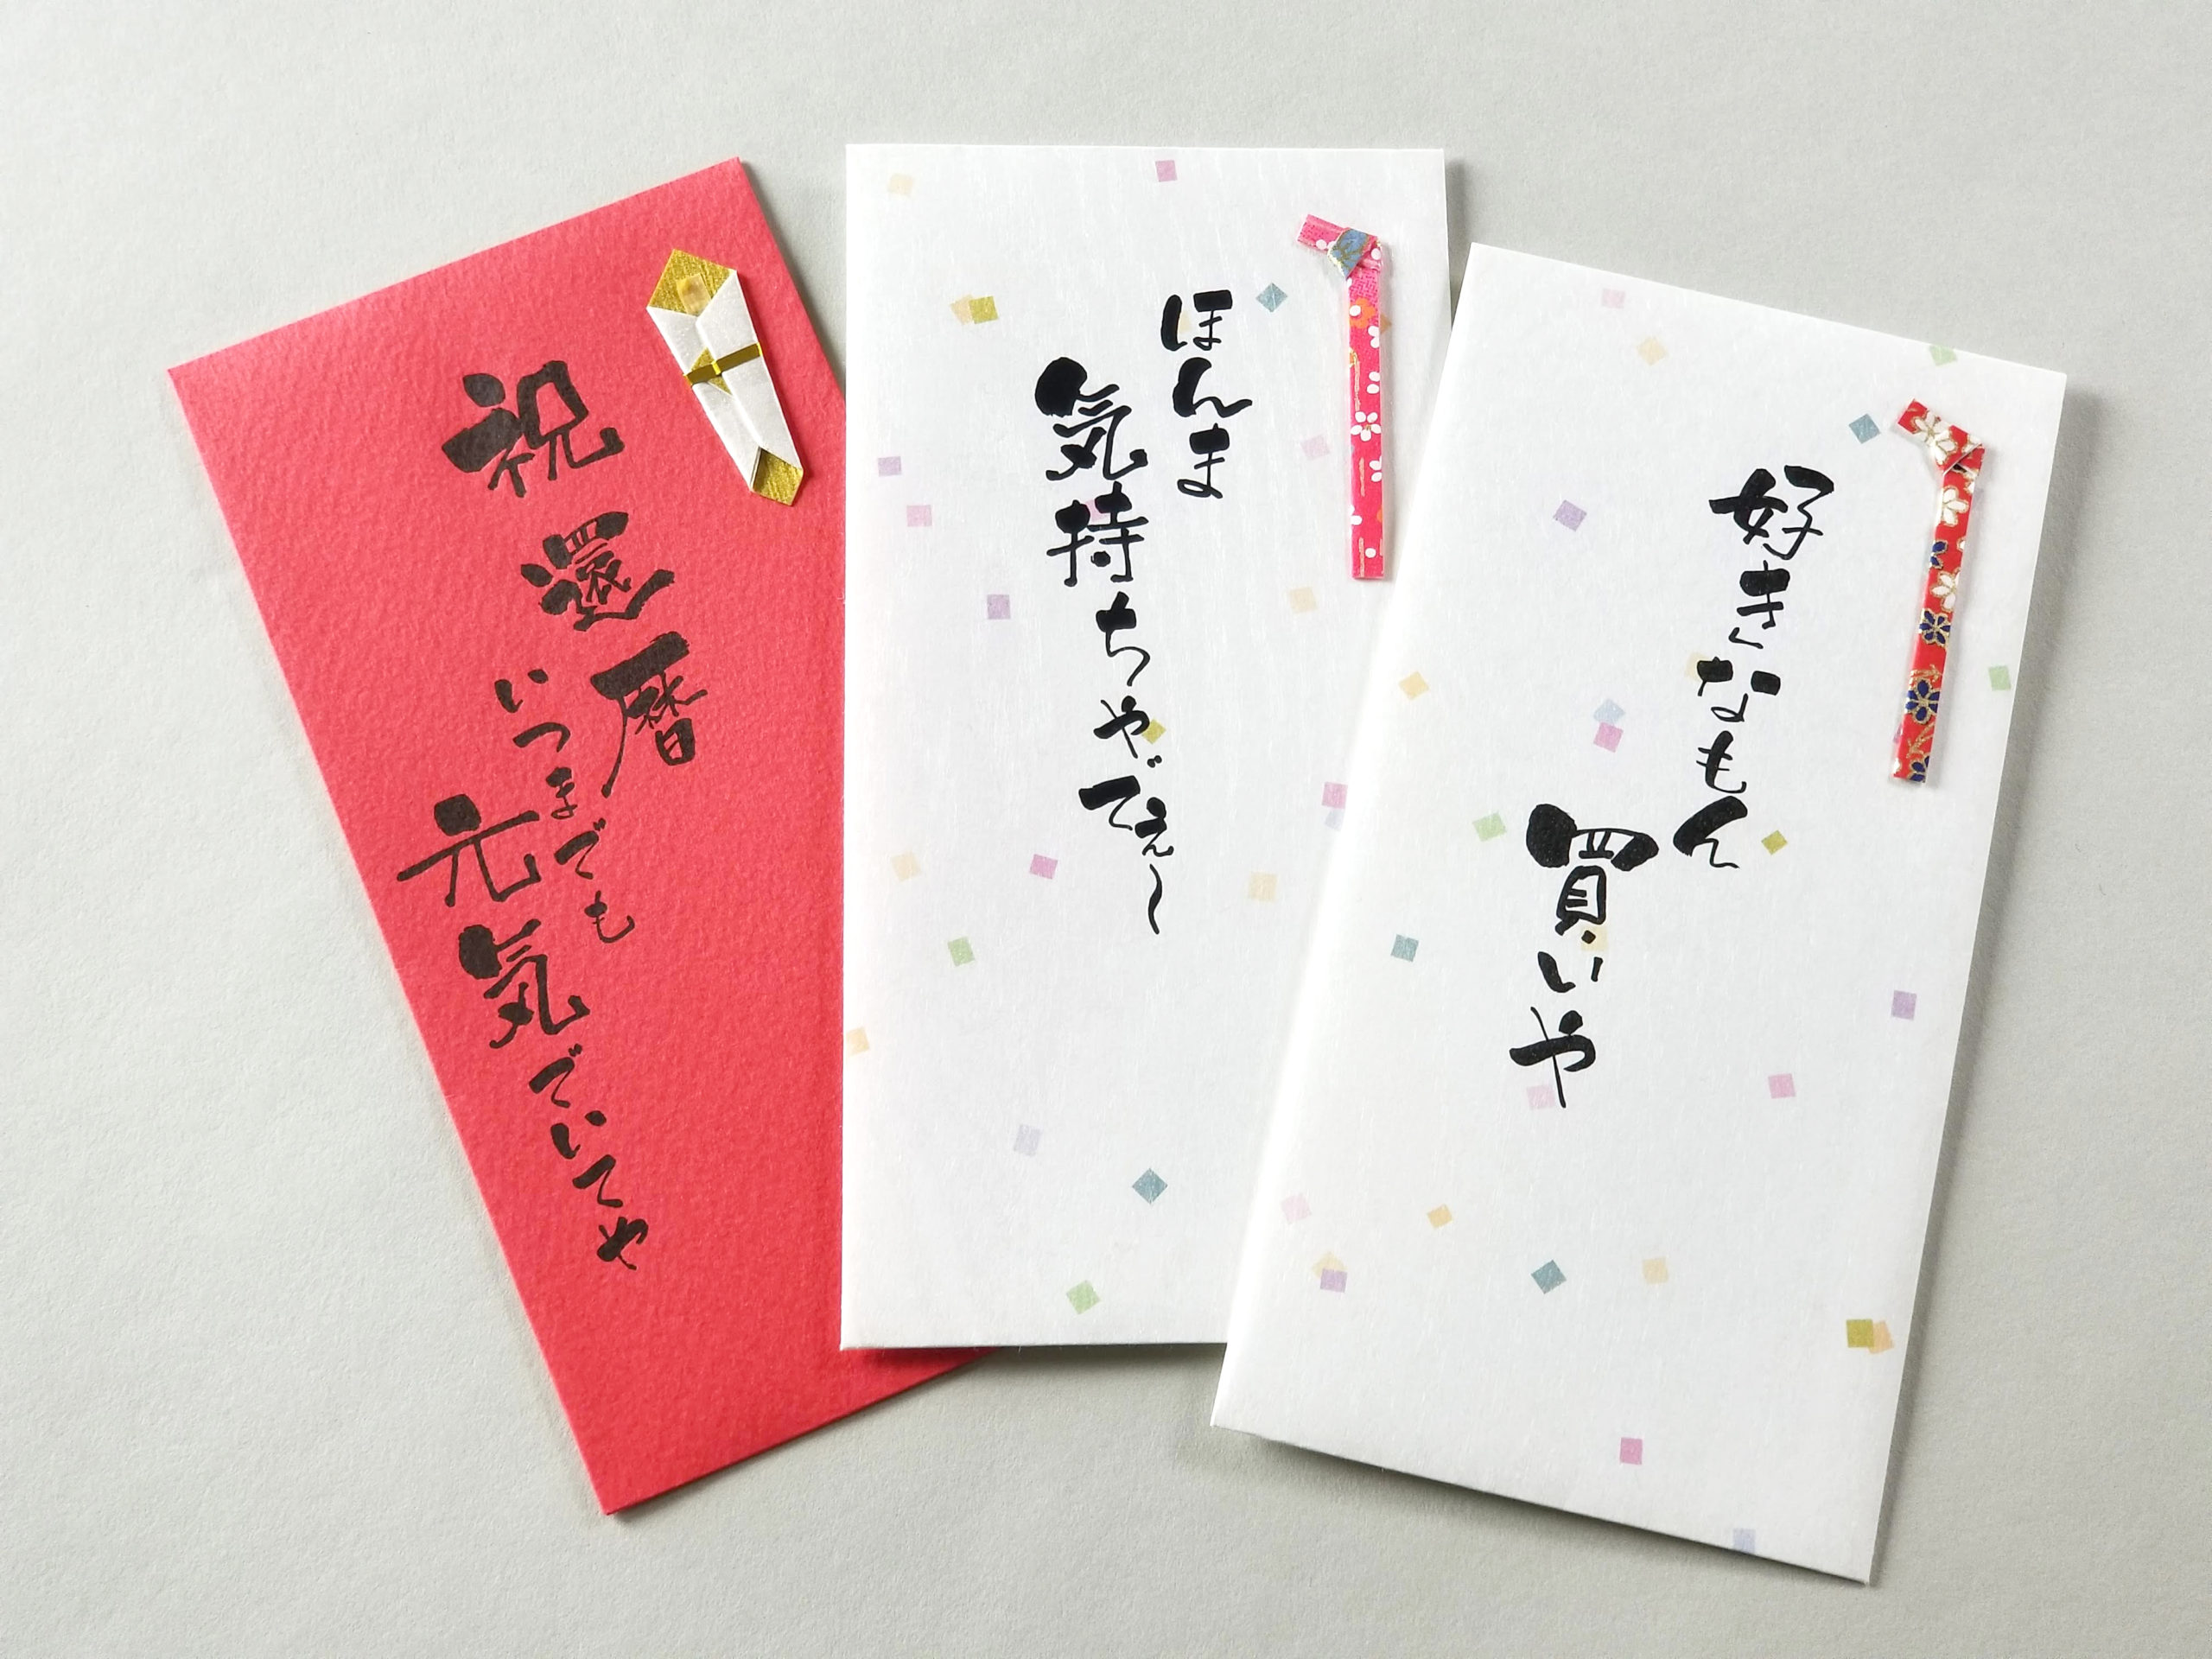 祝還暦
いつまでも
元気でいてや
ほんま
気持ちやでぇ～
好きなもん
買いや